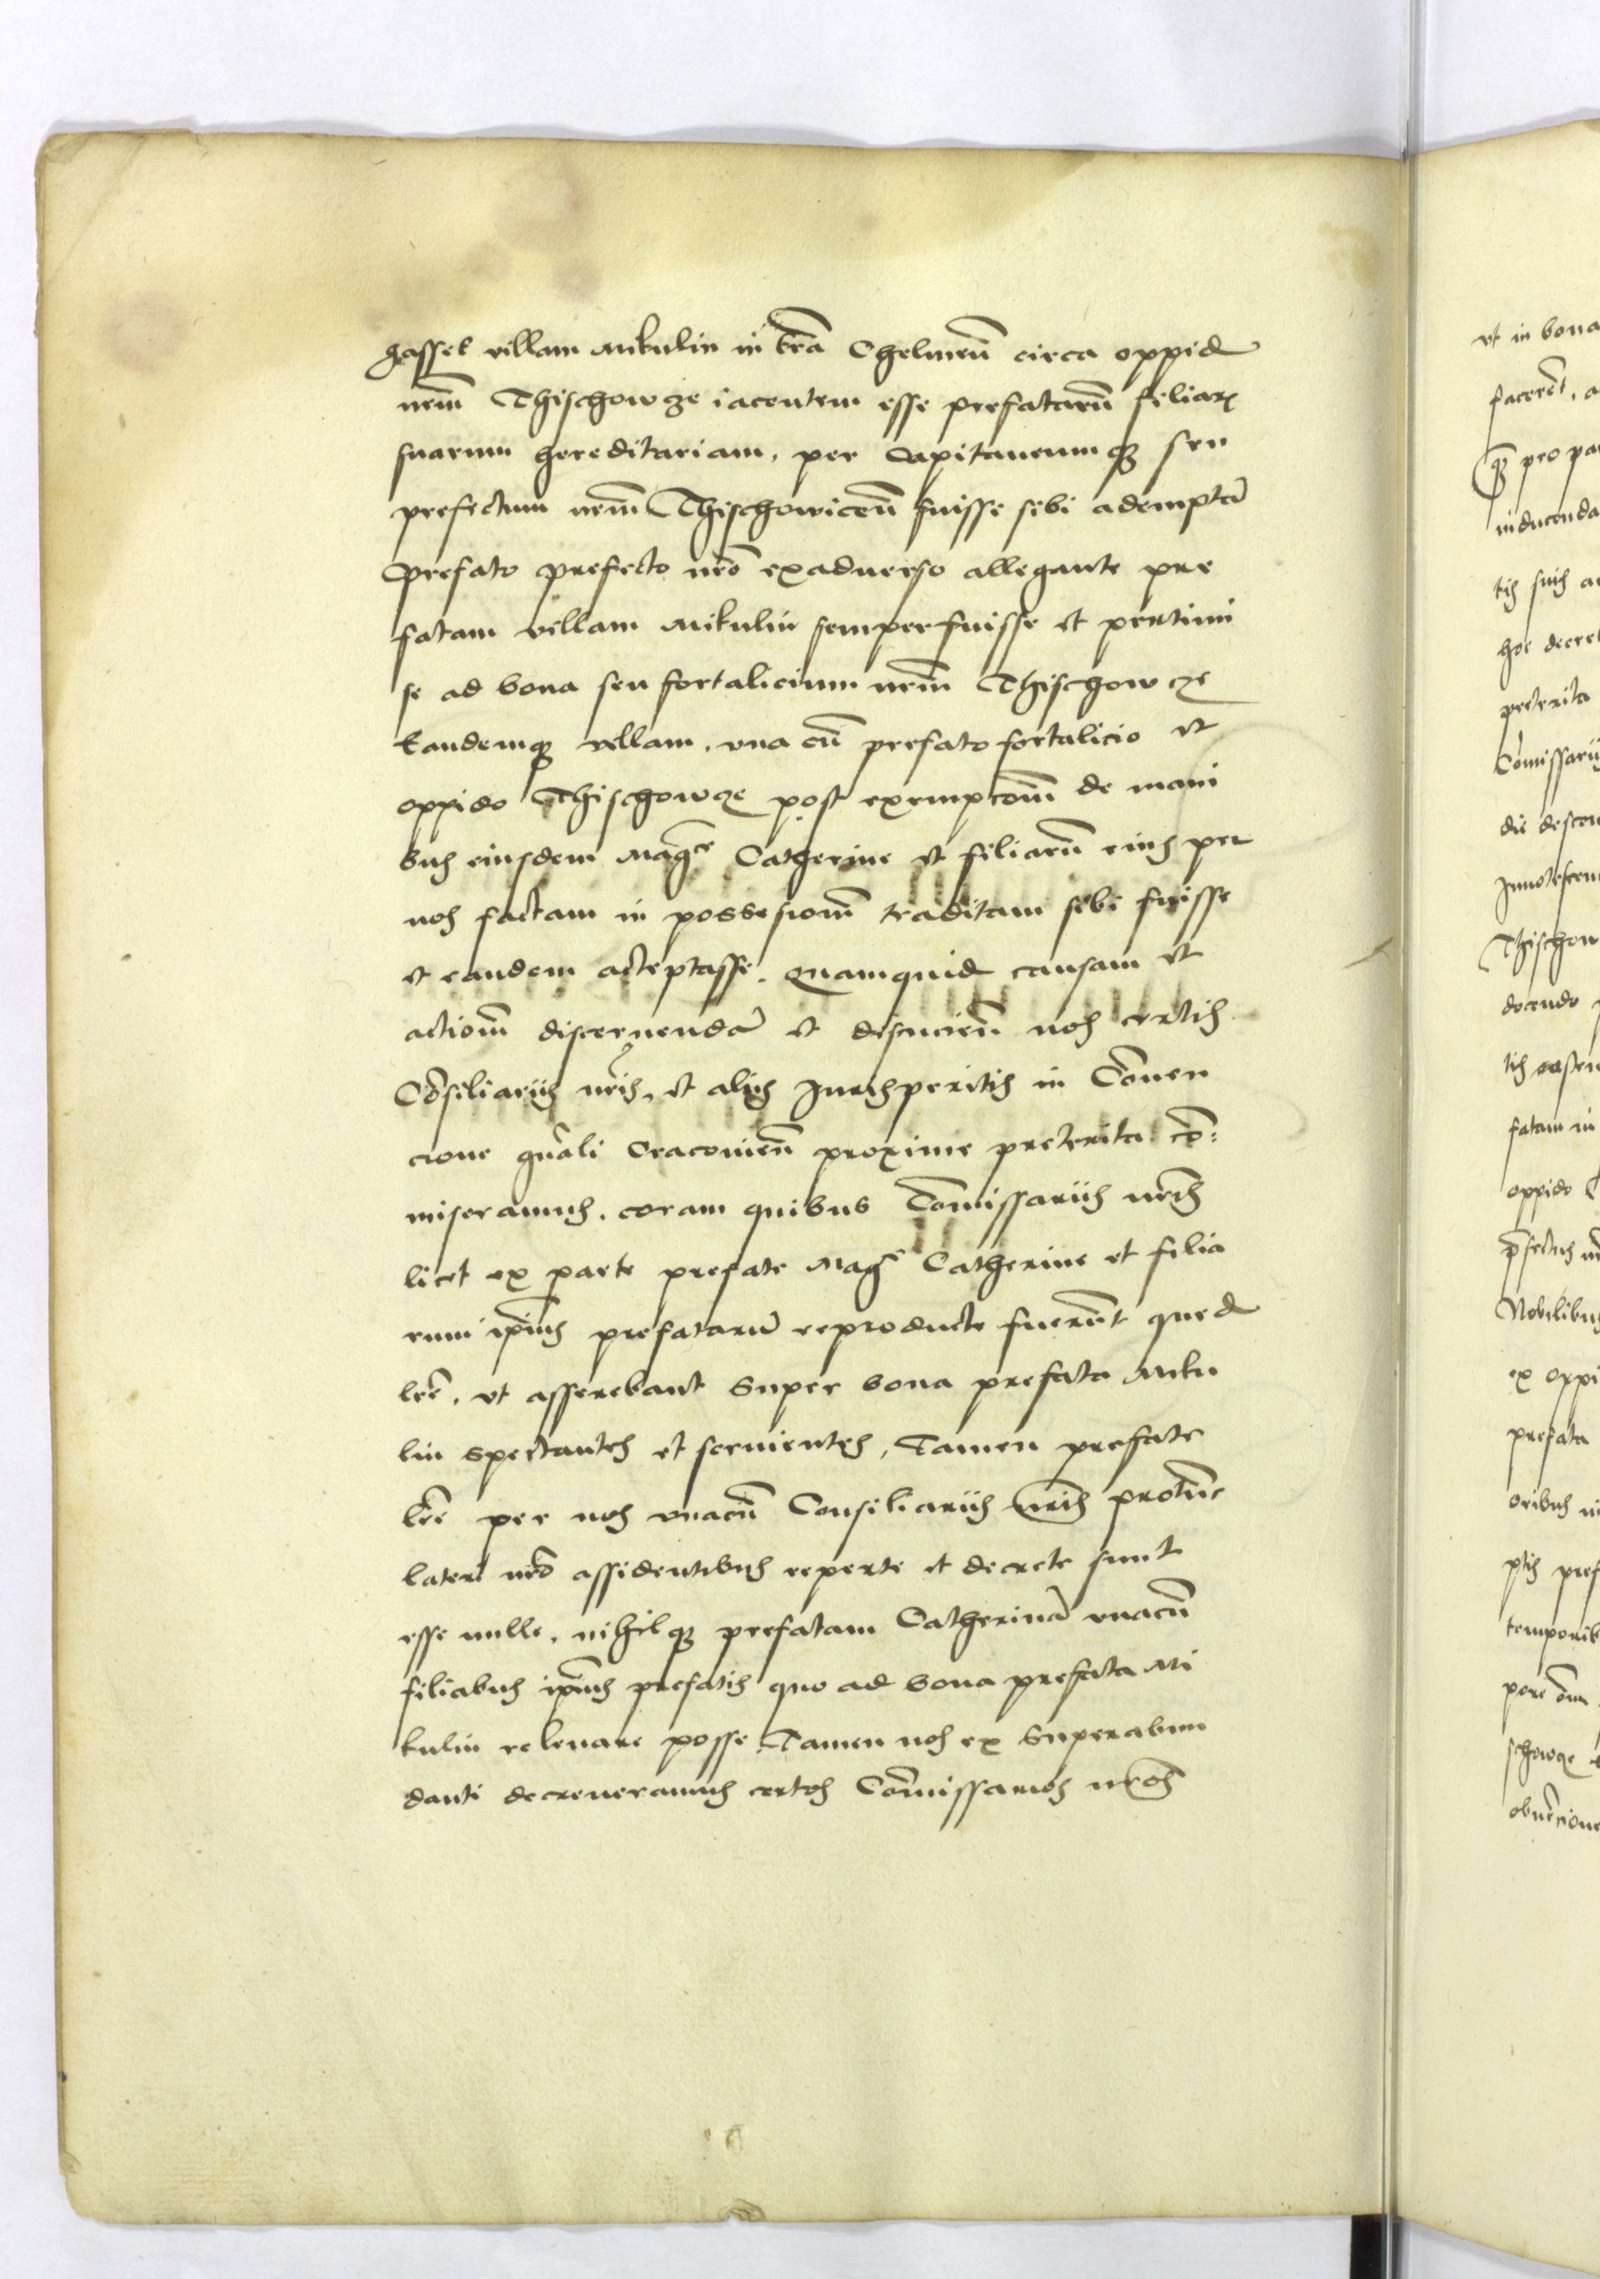 gasset villam Mikulin in tr̃a Chelmeñ circa oppid
nrm̃ Thischowcze iacentem esse prefatarũ filiarꝫ
suarum hereditariam, per Capitaneumqꝫ seu
prefectum nrm̃ Thischowiceñ fuisse sibi ademptā
Prefato prefecto nrõ exaduerso allegante pre
fatam villam Mikulin semper fuisse et pertinui
se ad bona seu fortalicium nrm̃ Thischowcze
Eandemqꝫ villam, vna cũ prefato fortalicio et
oppido Thischowcze post exempcom̃ de mani
bus eiusdem Magce Catherine et filiarũ eius per
nos factam in possesiom̃ traditam sibi fuisse
et eandem acceptasse. Quamquid causam et
actiom̃ discernendā et discucieñ nos certis
Cõsiliarijs nris̃, et alijs Jurisperitis in Conuen
cione gnãli Cracouieñ proxime preterita cõ=
miseramus, coram quibus Comissarijs nris̃
licet ex parte prefate Magce Catherine et filia
rum ipĩus prefatarū reproducte fuerũt qued
lrẽ, vt asserebant super bona prefata Miku
lin spectantes et seruientes, Tamen prefate
lrẽ per nos vnacũ Consiliarijs nris̃ protũc
lateri nrõ assidentibus reperte et decrete sunt
esse nulle, nihilqꝫ prefatam Catherinā vnacũ
filiabus ipĩus prefatis quo ad bona prefata Mi
kulin releuare posse, Tamen nos ex superabun
danti decreueramus certos Comissarios nros̃
vt in bona
facerẽt, a
qꝫ pro pa
inducenda
tis suis a
hoc decret
preterita
Comissarij
die descen
Innotescen
Thischow
docendo
fatam in
oppido
Nobilibus
ex oppi
prefata
oribus
temporib
schowcze
obuẽcione